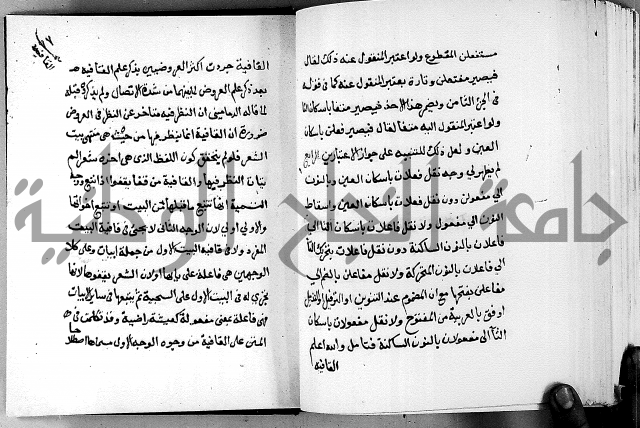 مستفعلن المقطوع ولو اعتبر المنقول عنه ذلك لقال
فيصير مفتعلن وتارة يعتبر المنقول عنه كما في قوله
في الجزء الثامن ويصير هذا الاحذ فيصير متفا باسكان التا
ولو اعتبر المنقول اليه متفا لقال فيصير فعلن باسكان
العين ولعل ذلك للتنبيه على جواز الاعتبارين الرابع
لم يظهر لي وجه نقل فعلات باسكان العين وبالنون
الي مفعولن دون نقل فعلات باسكان العين واسقاط
النون الي مفعول ولا نقل فاعلات باسكان التا الي
فاعلان بالنون الساكنة دون نقل فاعلات بتحريك التا
الي فاعلات بالنون المتحركة ولا نقل مفاعلن بالخرم الي
مفاعلن بفتحها مع ان المضموم عند التنوين او
اوفق بالعربية من المفتوح ولا نقل مفعولات باسكان
التا الي مفعولان بالنون الساكنة فتامل والله اعلم
القافية
القافية
القافية جردت اكثر العروضيين بذكر علم القافية
بعد ذكر علم العروض لما بينهما من شدة الاتصال ولم يذكره قبله
لما قاله الدماميني ان النظر فيه متاخر عن النظر في العروض
ضرورة ان القافية انما ينظر فيها من حيث هي منتهى بيت
الشعر فلو لم يتحقق كون اللفظ الذي هي اخره شعرا لم
يتات النظر فيها والقافية من قفا يقفوا اذا تتبع
التسمية انها تتبع ما قبلها من البيت او تتبع اخواتها
والاولي اولي لان الوجه الثاني لا يجري في قافية البيت
المفرد ولا في قافية البيت الاول من جملة ابيات وعلى كلا
الوجهين هي فاعلة على بابها او لان الشعر يقفوها لانها
تجري له في البيت الاول على السجية ثم يتبعها في سائر الابيات
فهي فاعلة بمعنى مفعولة كعيشة راضية وقد تكلمت في
المتن على القافية من وجوه الوجه الاول مسماها اصطلاحا